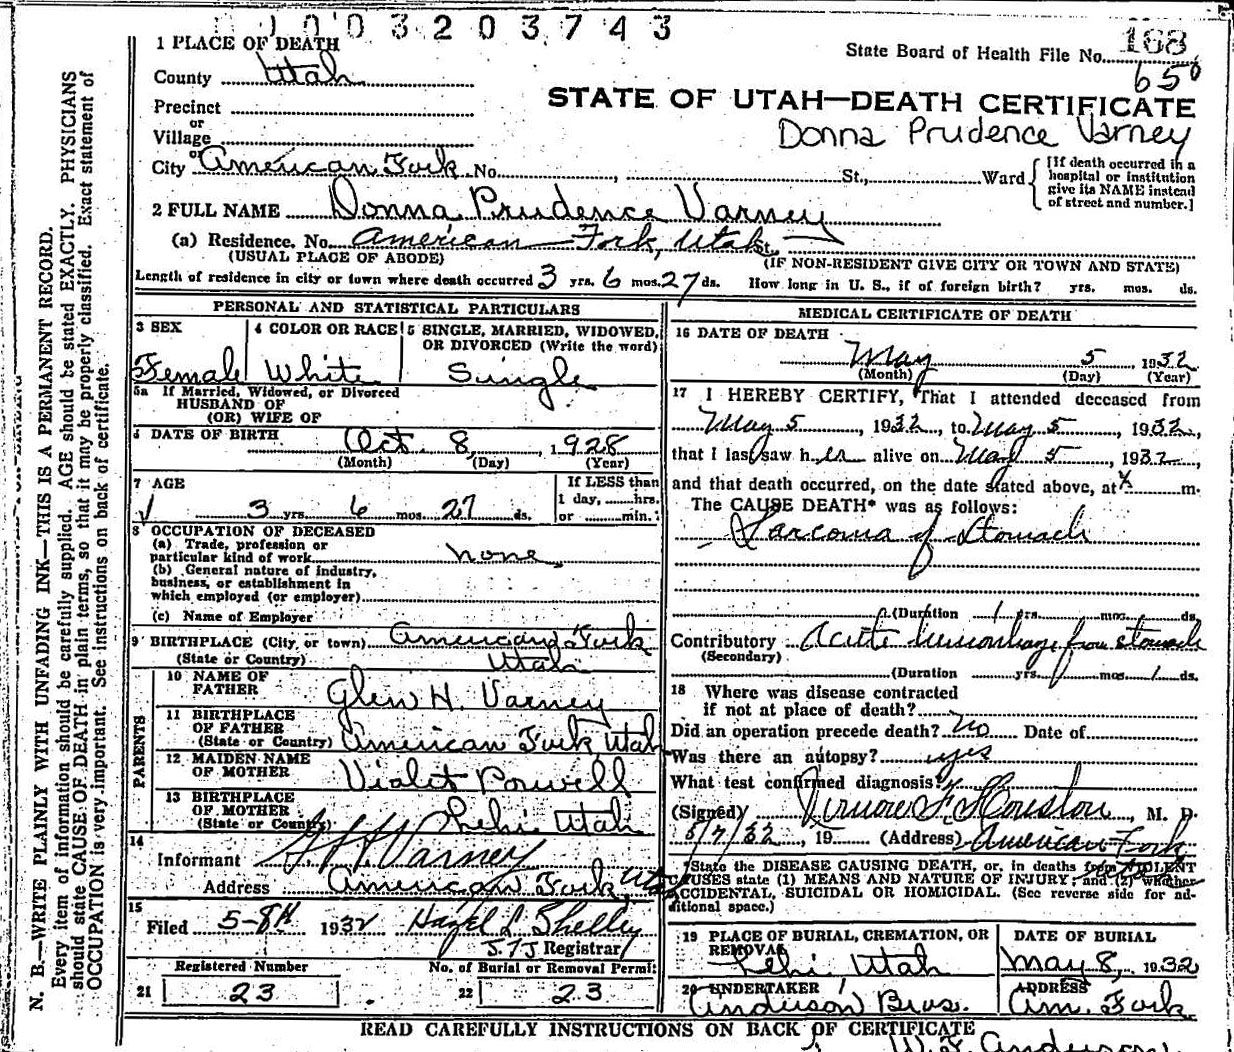 1003203743
State Board of Health File No. 168
650
STATE OF UTAH—DEATH CERTIFICATE
Donna Prudence Varney
1 PLACE OF DEATH
County Utah
Precinct
or
Village
or
City American Fork No. , St., Ward
[If death occurred in a
hospital or institution
give its NAME instead
of street and number.]
2 FULL NAME Donna Prudence Varney
(a) Residence. No. American Fork, Utah St.,
(USUAL PLACE OF ABODE) (IF NON-RESIDENT GIVE CITY OR TOWN AND STATE)
Length of residence in city or town where death occurred 3 yrs. 6 mos. 27 ds. How long in U. S., if of foreign birth? yrs. mos. ds.
PERSONAL AND STATISTICAL PARTICULARS
3 SEX
Female
4 COLOR OR RACE
White
5 SINGLE, MARRIED, WIDOWED,
OR DIVORCED (Write the word)
Single
5a If Married, Widowed, or Divorced
HUSBAND OF
(OR) WIFE OF
6 DATE OF BIRTH Oct. 8, 1928
(Month) (Day) (Year)
7 AGE
3 yrs. 6 mos. 27 ds.
If LESS than
1 day, hrs.
or min.
8 OCCUPATION OF DECEASED
(a) Trade, profession or
particular kind of work none
(b) General nature of industry,
business, or establishment in
which employed (or employer)
(c) Name of Employer
9 BIRTHPLACE (City or town) American Fork
(State or Country) Utah
PARENTS
10 NAME OF
FATHER Glen H. Varney
11 BIRTHPLACE
OF FATHER
(State or Country) American Fork, Utah
12 MAIDEN NAME
OF MOTHER Violet Powell
13 BIRTHPLACE
OF MOTHER
(State or Country) Lehi Utah
14
Informant G H Varney
Address American Fork Utah
15
Filed 5-8th 1932 Hazel L Shelley
Registrar
Registered Number
21 23
No. of Burial or Removal Permit
22 23
MEDICAL CERTIFICATE OF DEATH
16 DATE OF DEATH
May 5, 1932
(Month) (Day) (Year)
17 I HEREBY CERTIFY, That I attended deceased from
May 5, 1932, to May 5, 1932,
that I last saw her alive on May 5, 1932,
and that death occurred, on the date stated above, at 4 m.
The CAUSE DEATH* was as follows:
Sarcoma of Stomach
(Duration 1 yrs. mos. ds.
Contributory Acute hemorrhage from stomach
(Secondary)
(Duration yrs. mos. 1 ds.
18 Where was disease contracted
if not at place of death?
Did an operation precede death? No Date of
Was there an autopsy? yes
What test confirmed diagnosis?
(Signed) Houston, M. D.
5/7/32, 19 (Address) American Fork
*State the DISEASE CAUSING DEATH, or, in deaths from VIOLENT
CAUSES state (1) MEANS AND NATURE OF INJURY; and (2) whether
ACCIDENTAL, SUICIDAL OR HOMICIDAL. (See reverse side for ad-
ditional space.)
19 PLACE OF BURIAL, CREMATION, OR
REMOVAL
Lehi, Utah
DATE OF BURIAL
May 8, 1932
20 UNDERTAKER
Anderson Bros.
ADDRESS
Am. Fork.
READ CAREFULLY INSTRUCTIONS ON BACK OF CERTIFICATE
W. F. Anderson
N. B.—WRITE PLAINLY WITH UNFADING INK—THIS IS A PERMANENT RECORD.
Every item of information should be carefully supplied. AGE should be stated EXACTLY. PHYSICIANS
should state CAUSE OF DEATH in plain terms, so that it may be properly classified. Exact statement of
OCCUPATION is very important. See instructions on back of certificate.